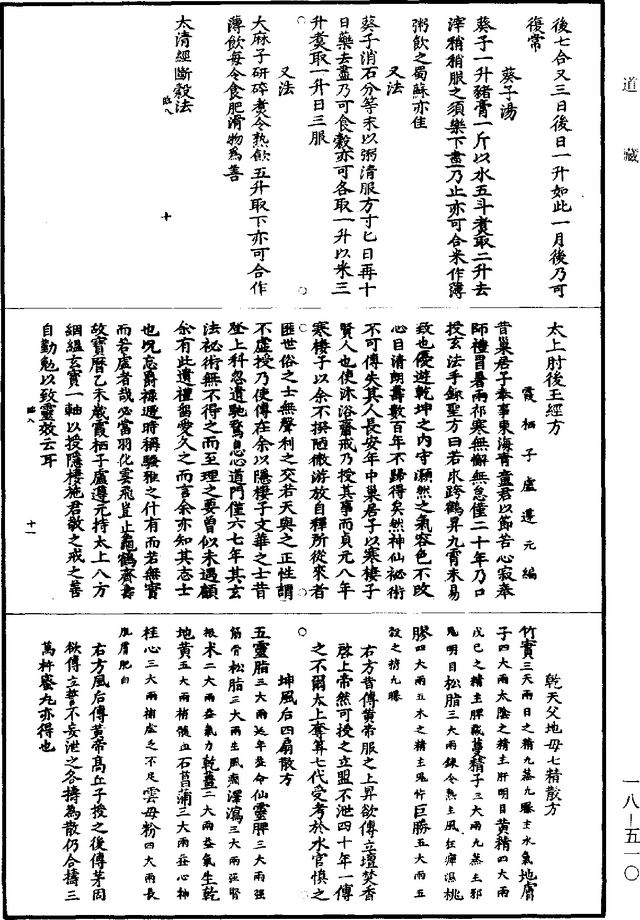 道藏
後七合又三日後日一升如此一月後乃可
復常
葵子湯
葵子一升豬膏一斤以水五斗煮取二升去
滓稍稍服之須藥下盡乃止亦可合米作薄
粥飲之蜀蘇亦佳
又法
葵子消石分等末以粥清服方寸匕日再十
日藥去盡乃可食穀亦可各取一升以米三
升煮取一升日三服
又法
大麻子研碎煮令熟飲五升取下亦可合作
薄飲每令食肥滑物為善
太清經斷穀法
臨八
十
太上肘後玉經方
霞棲子盧遵元編
昔巢居子奉事東海青童君以節苦心寂奉
師禮冒暑雨祁寒無懈無怠僅二十年乃口
授玄法手錄聖方曰若求跨鶴昇九霄未易
致也優遊乾坤之內守灝然之氣容色不改
心目清朗壽數百年不歸得矣然神仙祕術
不可傳失其人長安年中巢居子以寒棲子
賢人也使沐浴齋戒乃授其事而貞元八年
寒棲子以余不揆陋微游放自釋所從來者
匪世俗之士無聲利之交若天與之正性謂
不虛授乃使傳在余以隱棲子文華之士昔
登上科忽遺馳騖息心道門僅六七年其玄
法祕術無不得之而至理之要曾似未遇顧
余有此遺禮留愛久之而言余亦知其志士
也況忘爵祿遁時稱騷雅之什有而若無實
而若虛者哉必當羽化雲飛豈止龜鶴齊壽
故寶曆乙未歲霞棲子盧遵元持太上八方
絪縕玄寶一軸以授隱棲施君敬之戒之善
自勤勉以致靈效云耳
臨八
十一
乾天父地母七精散方
竹實三大兩日之精九蒸九曝主水氣地膚
子四大兩太陰之精主肝明目黃精四大兩
戊己之精主脾臟蔓精子三大兩九蒸主邪
鬼明目松脂三大兩鍊令熟主風狂痺濕桃
膠四大兩五木之精主鬼忤巨勝五大兩五
穀之精九曝
右方昔傳黃帝服之上昇欲傳立壇焚香
啓上帝然可授之立盟不泄四十年一傳
之不爾太上奪算七代受考於水官慎之
坤風后四扇散方
五靈脂三大兩延年益命仙靈脾三大兩強
筋骨松脂三大兩主風癇澤瀉三大兩強腎
根朮二大兩益氣力乾薑二大兩益氣生乾
地黃五大兩補髓血石菖蒲三大兩益心神
桂心三大兩補虛乏不足雲母粉四大兩長
肌膚肥白
右方風后傳黃帝高丘子授之後傳茅固
欲傳立誓不妄泄之各擣為散仍合擣三
萬杵蜜丸亦得也
一八—五一〇